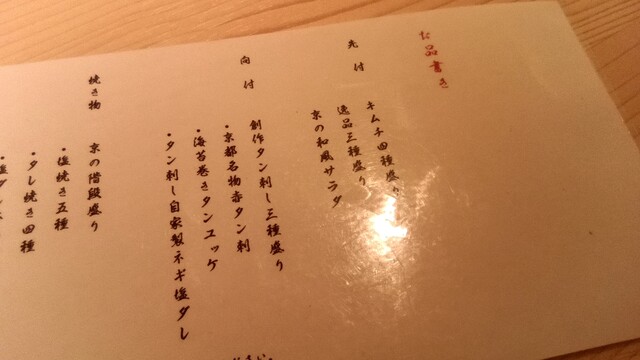 お品書き
先付
キムチ四種盛り
逸品三種盛り
京の和風サラダ
向付
創作タン刺し三種盛り
・京都名物赤タン刺
・海苔巻きタンユッケ
・タン刺し自家製ネギ塩ダレ
焼き物
京の階段盛り
・塩焼き五種
・タレ焼き四種